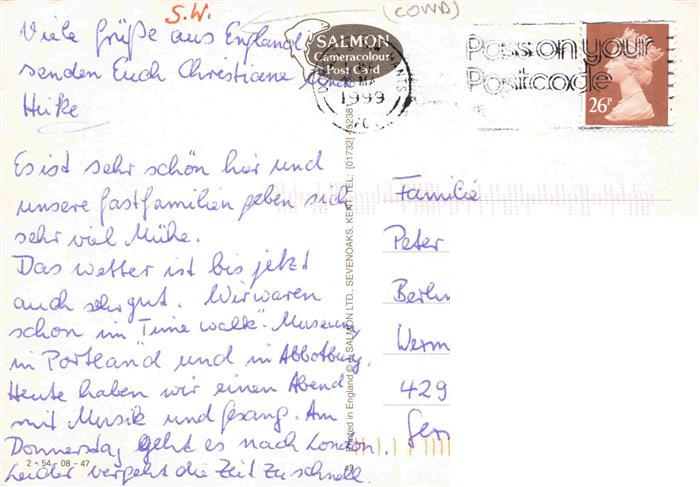 S.W.
(COWD)
Viele Grüße aus England
senden Euch Christiane
Heike
SALMON
Cameracolour
Post Card
1999
Pass on your
Postcode
26P
Es ist sehr schön hier und
unsere Gastfamilien geben sich
sehr viel Mühe.
Das Wetter ist bis jetzt
auch sehr gut. Wir waren
schon im "Time walk" Museum
in Portland und in Abbotbury.
Heute haben wir einen Abend
mit Musik und Gesang. Am
Donnerstag geht es nach London.
Leider vergeht die Zeit zu schnell.
2-54-08-47
Printed in England © J SALMON LTD., SEVENOAKS, KENT. TEL: (01732)
Familie
Peter
Berlin
Werm
429
Ger